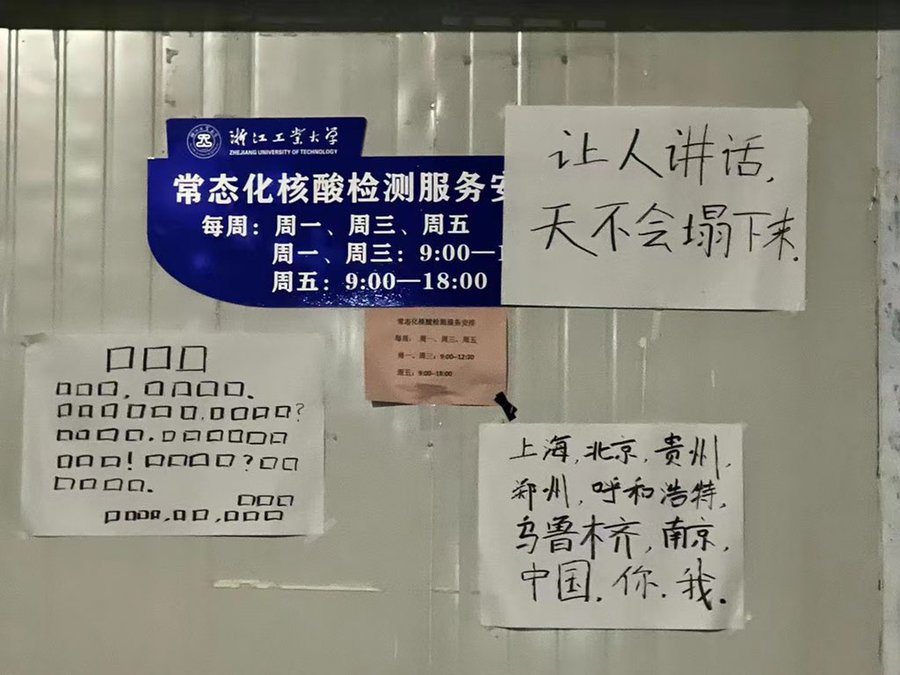 浙江工業大学
ZHEJIANG UNIVERSITY OF TECHNOLOGY
常态化核酸检测服务
每周：周一、周三、周五
周一、周三：9:00—
周五：9:00—18:00
让人讲话，
天不会塌下来.
常态化核酸检测服务安排
每周：周一、周三、周五
周一、周三：9:00--12:30
周五：9:00--18:00
□□□
□□□，□□□□。
□□□□□□□，□□□□？
□□□□.□□□□□□□
□□□！□□□□？□□
□□□□□.
□□□
□□□□，□□，□□□
上海，北京，贵州，
郑州，呼和浩特，
乌鲁木齐，南京，
中国.你.我.